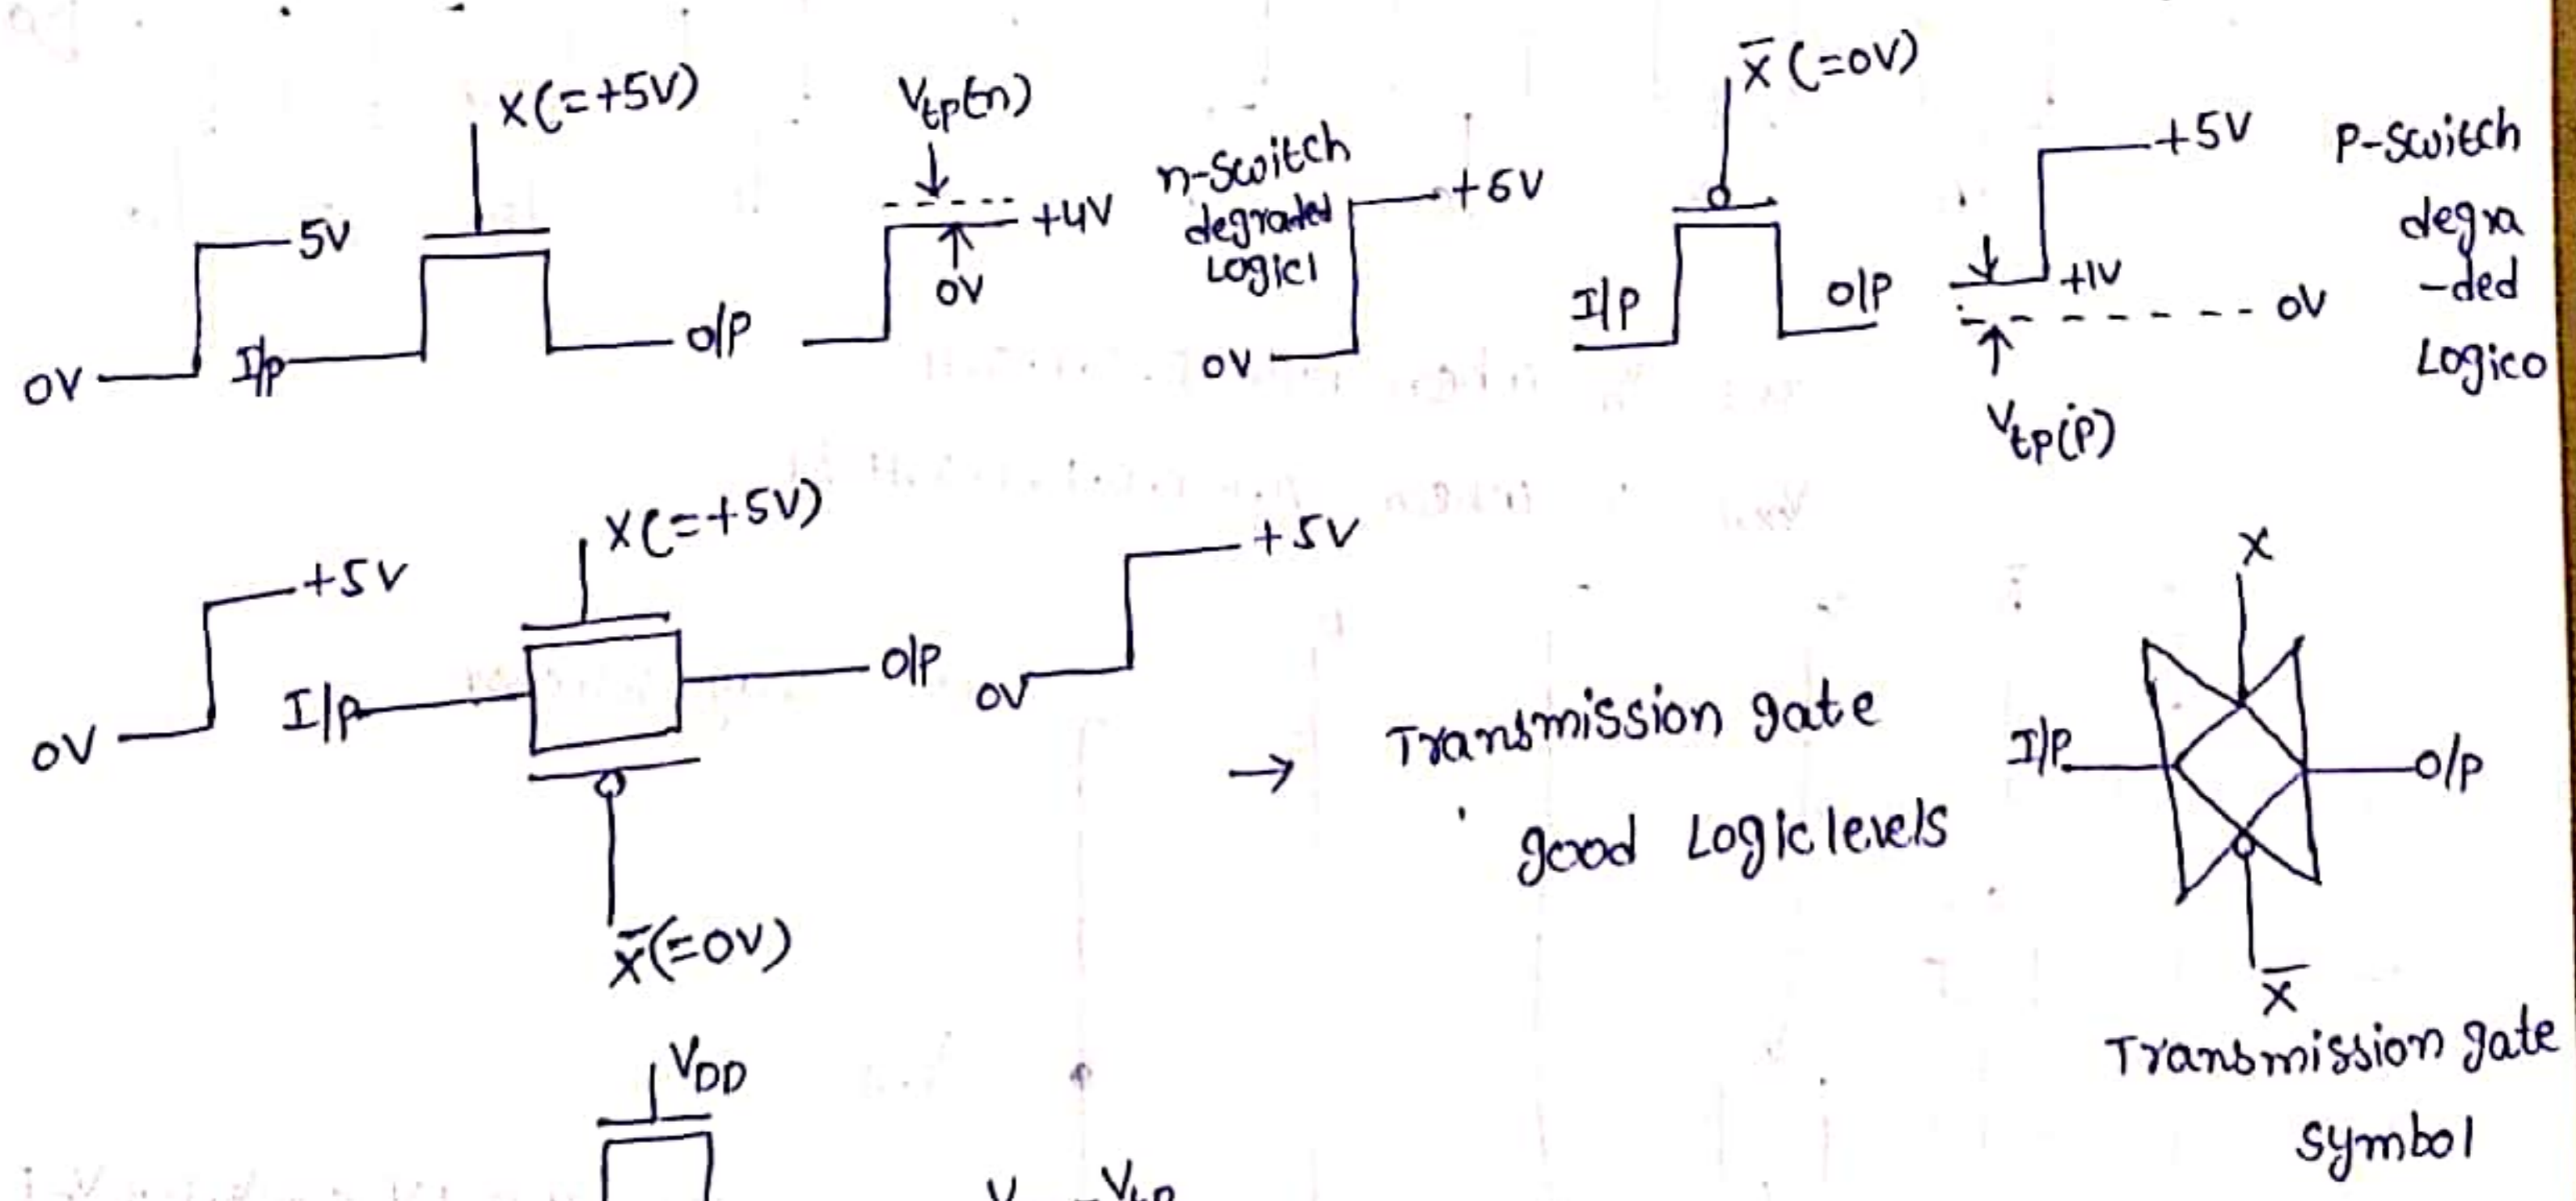 X(=+5V)
5V
0V
I/p
O/P
Vtp(n)
+4V
0V
n-switch
degraded
Logic1
X̅(=0V)
+6V
0V
I/P
O/P
+5V
+1V
0V
Vtp(p)
P-switch
degra
-ded
Logico
X(=+5V)
+5V
0V
I/p
O/P
X̅(=0V)
+5V
0V
→ Transmission gate
good Logic levels
X
I/P
O/P
X̅
Transmission gate
symbol
VDD